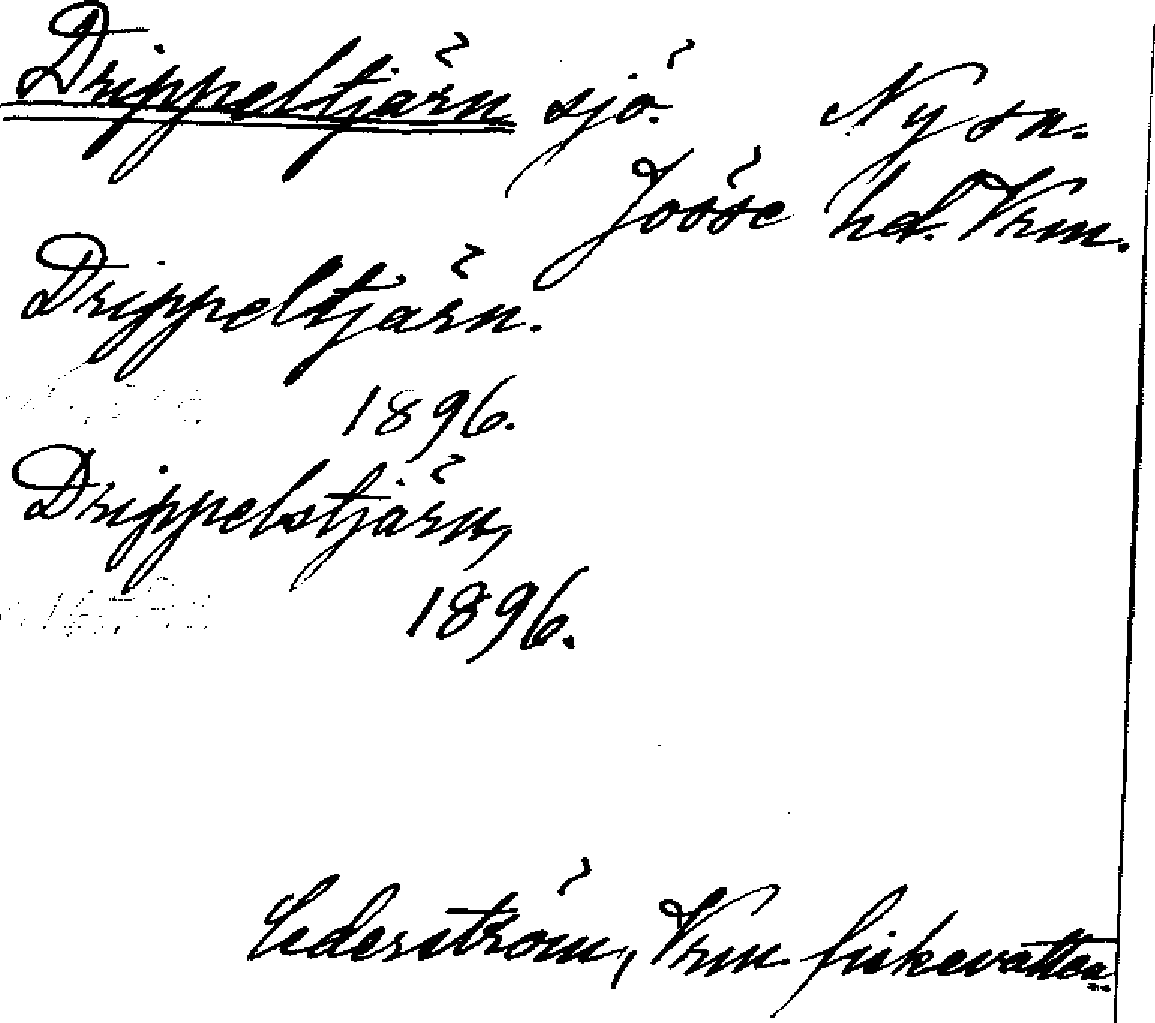 Drippeltjärn sjö. Ny sn.
Jösse hd. Vrm.
Drippeltjärn.
1896.
Drippelstjärn,
1896.
Cederström, Vrm fiskevatten